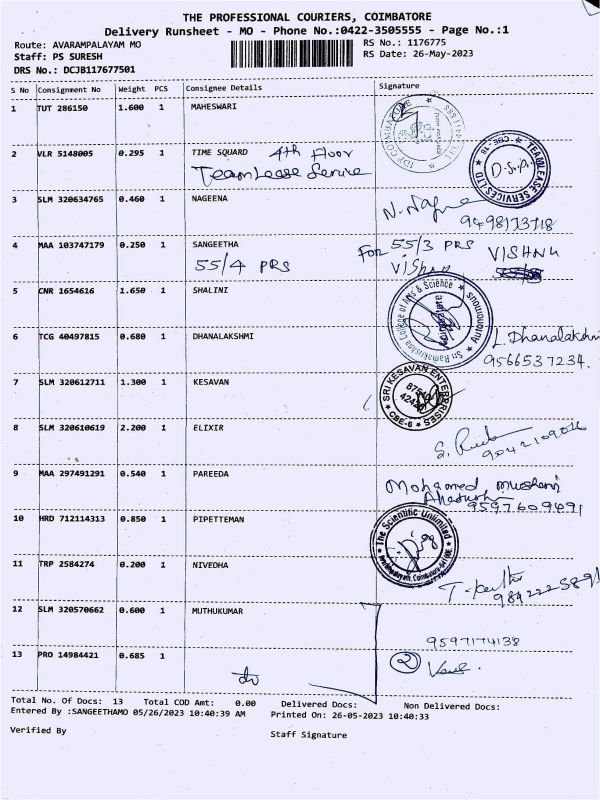 THE PROFESSIONAL COURIERS, COIMBATORE
Delivery Runsheet - MO - Phone No.:0422-3505555 - Page No.:1
Route: AVARAMPALAYAM MO
RS No.: 1176775
Staff: PS SURESH
RS Date: 26-May-2023
DRS No.: DCJB117677501
S No Consignment No Weight PCS Consignee Details Signature
1 TUT 286150 1.600 1 MAHESWARI
2 VLR 5148005 0.295 1 TIME SQUARD 4th Floor
TeamLease Service
TEAMLEASE SERVICES LTD ★ CBE-18 ★
3 SLM 320634765 0.460 1 NAGEENA
9498173718
4 MAA 103747179 0.250 1 SANGEETHA
55/4 PRS
For 55/3 PRS VISHNU
Vishnu
5 CNR 1654616 1.650 1 SHALINI
Sri Ramakrishna College of Arts & Science ★ Autonomous ★
6 TCG 40497815 0.680 1 DHANALAKSHMI
L. Dhanalakshmi
9566537234.
7 SLM 320612711 1.300 1 KESAVAN
SRI KESAVAN ENTERPRISES ★ CBE-6 ★
8 SLM 320610619 2.200 1 ELIXIR
9 MAA 297491291 0.540 1 PAREEDA
Mohamed
9597609491
10 HRD 712114313 0.850 1 PIPETTEMAN
The Scientific Unlimited
11 TRP 2584274 0.200 1 NIVEDHA
12 SLM 320570662 0.600 1 MUTHUKUMAR
9597174138
13 PRO 14984421 0.685 1
2
Total No. Of Docs: 13 Total COD Amt: 0.00 Delivered Docs: Non Delivered Docs:
Entered By :SANGEETHAMO 05/26/2023 10:40:39 AM Printed On: 26-05-2023 10:40:33
Verified By
Staff Signature